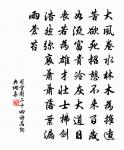 大風卷水林木為摧適
苦欲死招憩不來百歲
如流富貴冷灰大道日
喪若為雄才壯士拂劍
浩然彌哀蕭蕭落葉漏
雨蒼苔
司空圖二十四詩品詞